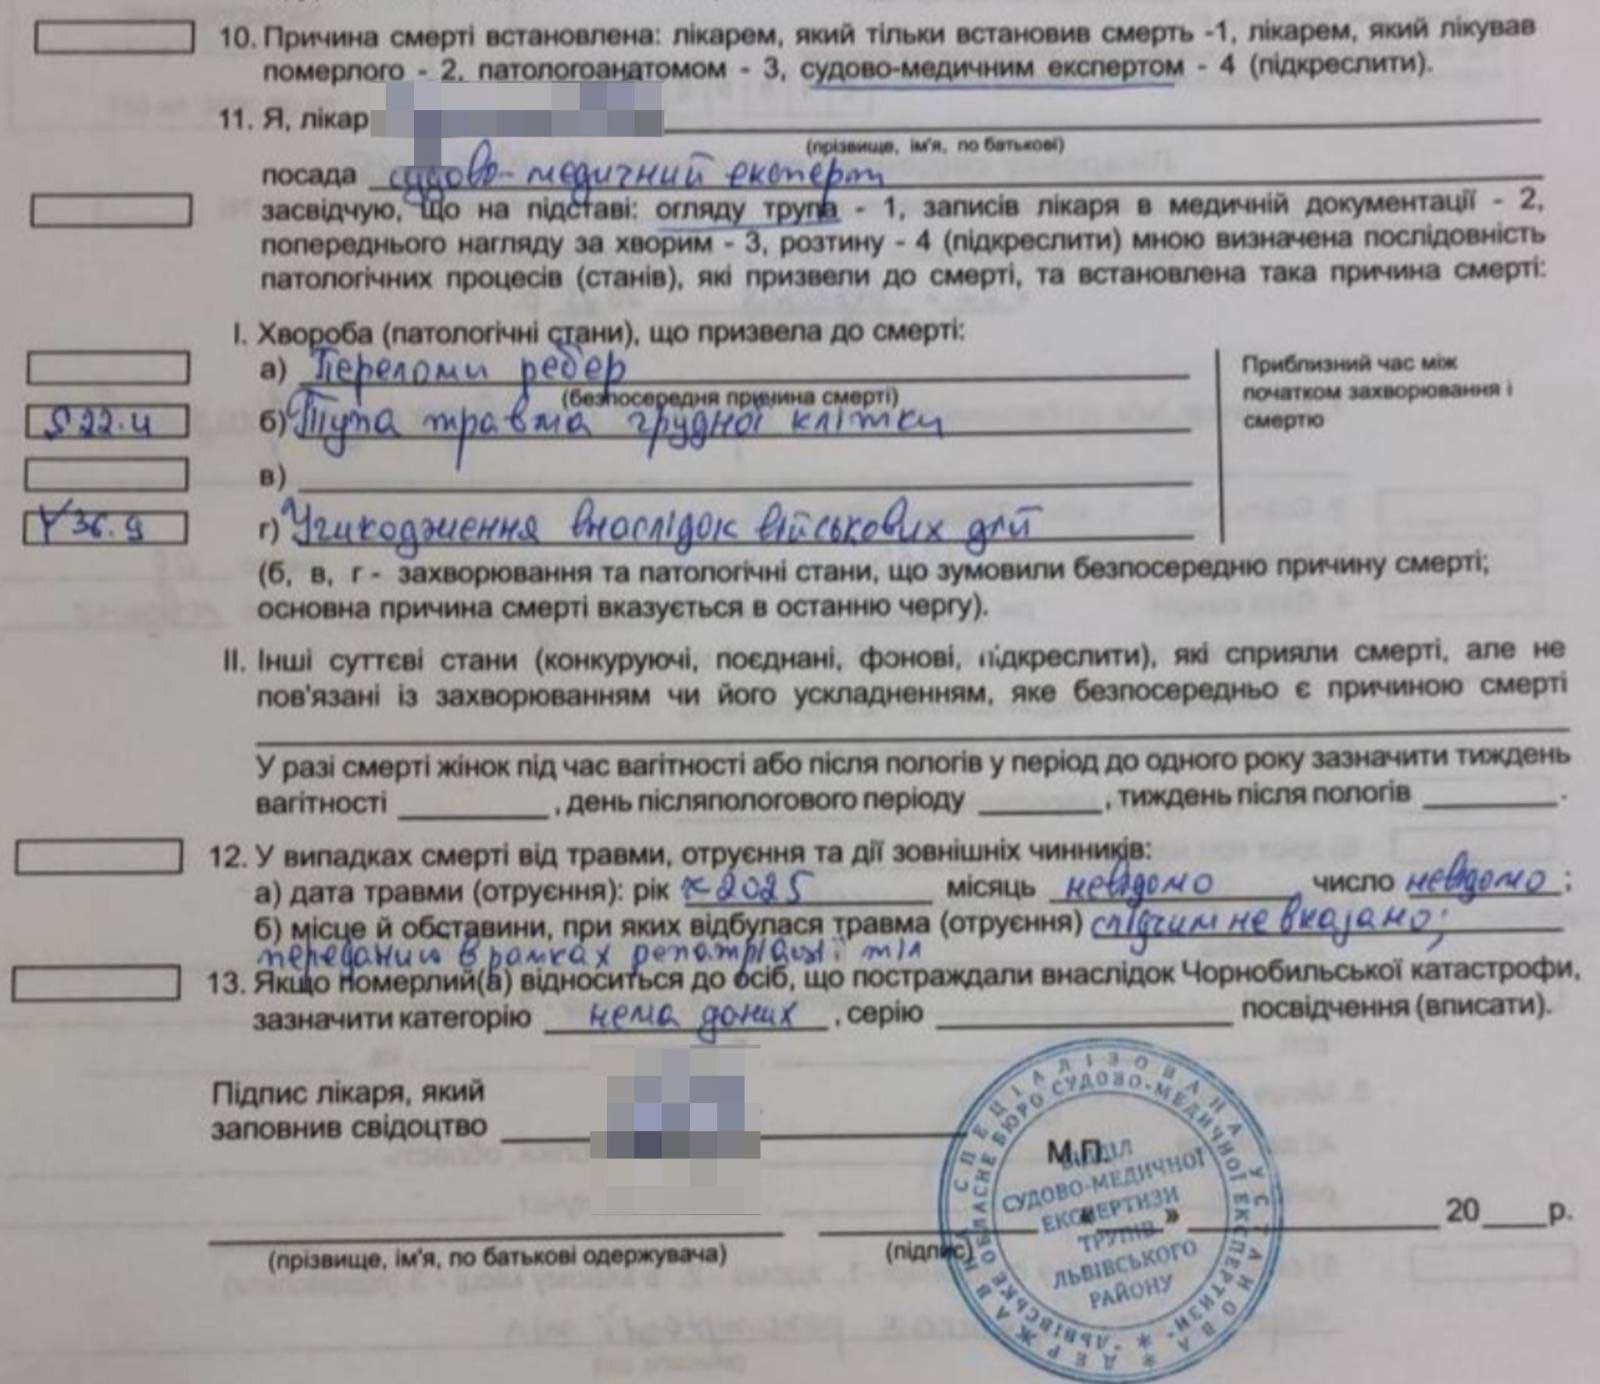 10. Причина смерті встановлена: лікарем, який тільки встановив смерть -1, лікарем, який лікував
померлого - 2, патологоанатомом - 3, судово-медичним експертом - 4 (підкреслити).
11. Я, лікар
(прізвище, ім'я, по батькові)
посада судово-медичний експерт
засвідчую, що на підставі: огляду трупа - 1, записів лікаря в медичній документації - 2,
попереднього нагляду за хворим - 3, розтину - 4 (підкреслити) мною визначена послідовність
патологічних процесів (станів), які призвели до смерті, та встановлена така причина смерті:
І. Хвороба (патологічні стани), що призвела до смерті:
а) Переломи ребер
(безпосередня причина смерті)
S22.4 б) Тупа травма грудної клітки
в)
Y36.9 г) Ушкодження внаслідок військових дій
Приблизний час між
початком захворювання і
смертю
(б, в, г - захворювання та патологічні стани, що зумовили безпосередню причину смерті;
основна причина смерті вказується в останню чергу).
ІІ. Інші суттєві стани (конкуруючі, поєднані, фонові, підкреслити), які сприяли смерті, але не
пов'язані із захворюванням чи його ускладненням, яке безпосередньо є причиною смерті
У разі смерті жінок під час вагітності або після пологів у період до одного року зазначити тиждень
вагітності , день післяпологового періоду , тиждень після пологів .
12. У випадках смерті від травми, отруєння та дії зовнішніх чинників:
а) дата травми (отруєння): рік ≈2025 місяць невідомо, число невідомо;
б) місце й обставини, при яких відбулася травма (отруєння) слідчим не вказано;
переданий в рамках репатріації тіл
13. Якщо померлий(а) відноситься до осіб, що постраждали внаслідок Чорнобильської катастрофи,
зазначити категорію нема даних, серію посвідчення (вписати).
Підпис лікаря, який
заповнив свідоцтво
М.П.
« » 20 р.
(прізвище, ім'я, по батькові одержувача) (підпис)
ДЕРЖАВНА СПЕЦІАЛІЗОВАНА УСТАНОВА
"ЛЬВІВСЬКЕ ОБЛАСНЕ БЮРО СУДОВО-МЕДИЧНОЇ ЕКСПЕРТИЗИ"
ВІДДІЛ
СУДОВО-МЕДИЧНОЇ
ЕКСПЕРТИЗИ
ТРУПІВ
ЛЬВІВСЬКОГО
РАЙОНУ